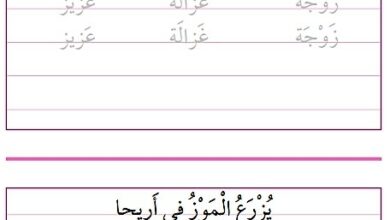 زَوْجَة غَزالَة عَزيز
زَوْجَة غَزالَة عَزيز
يُزْرَعُ الْمَوْزُ في أَريحا